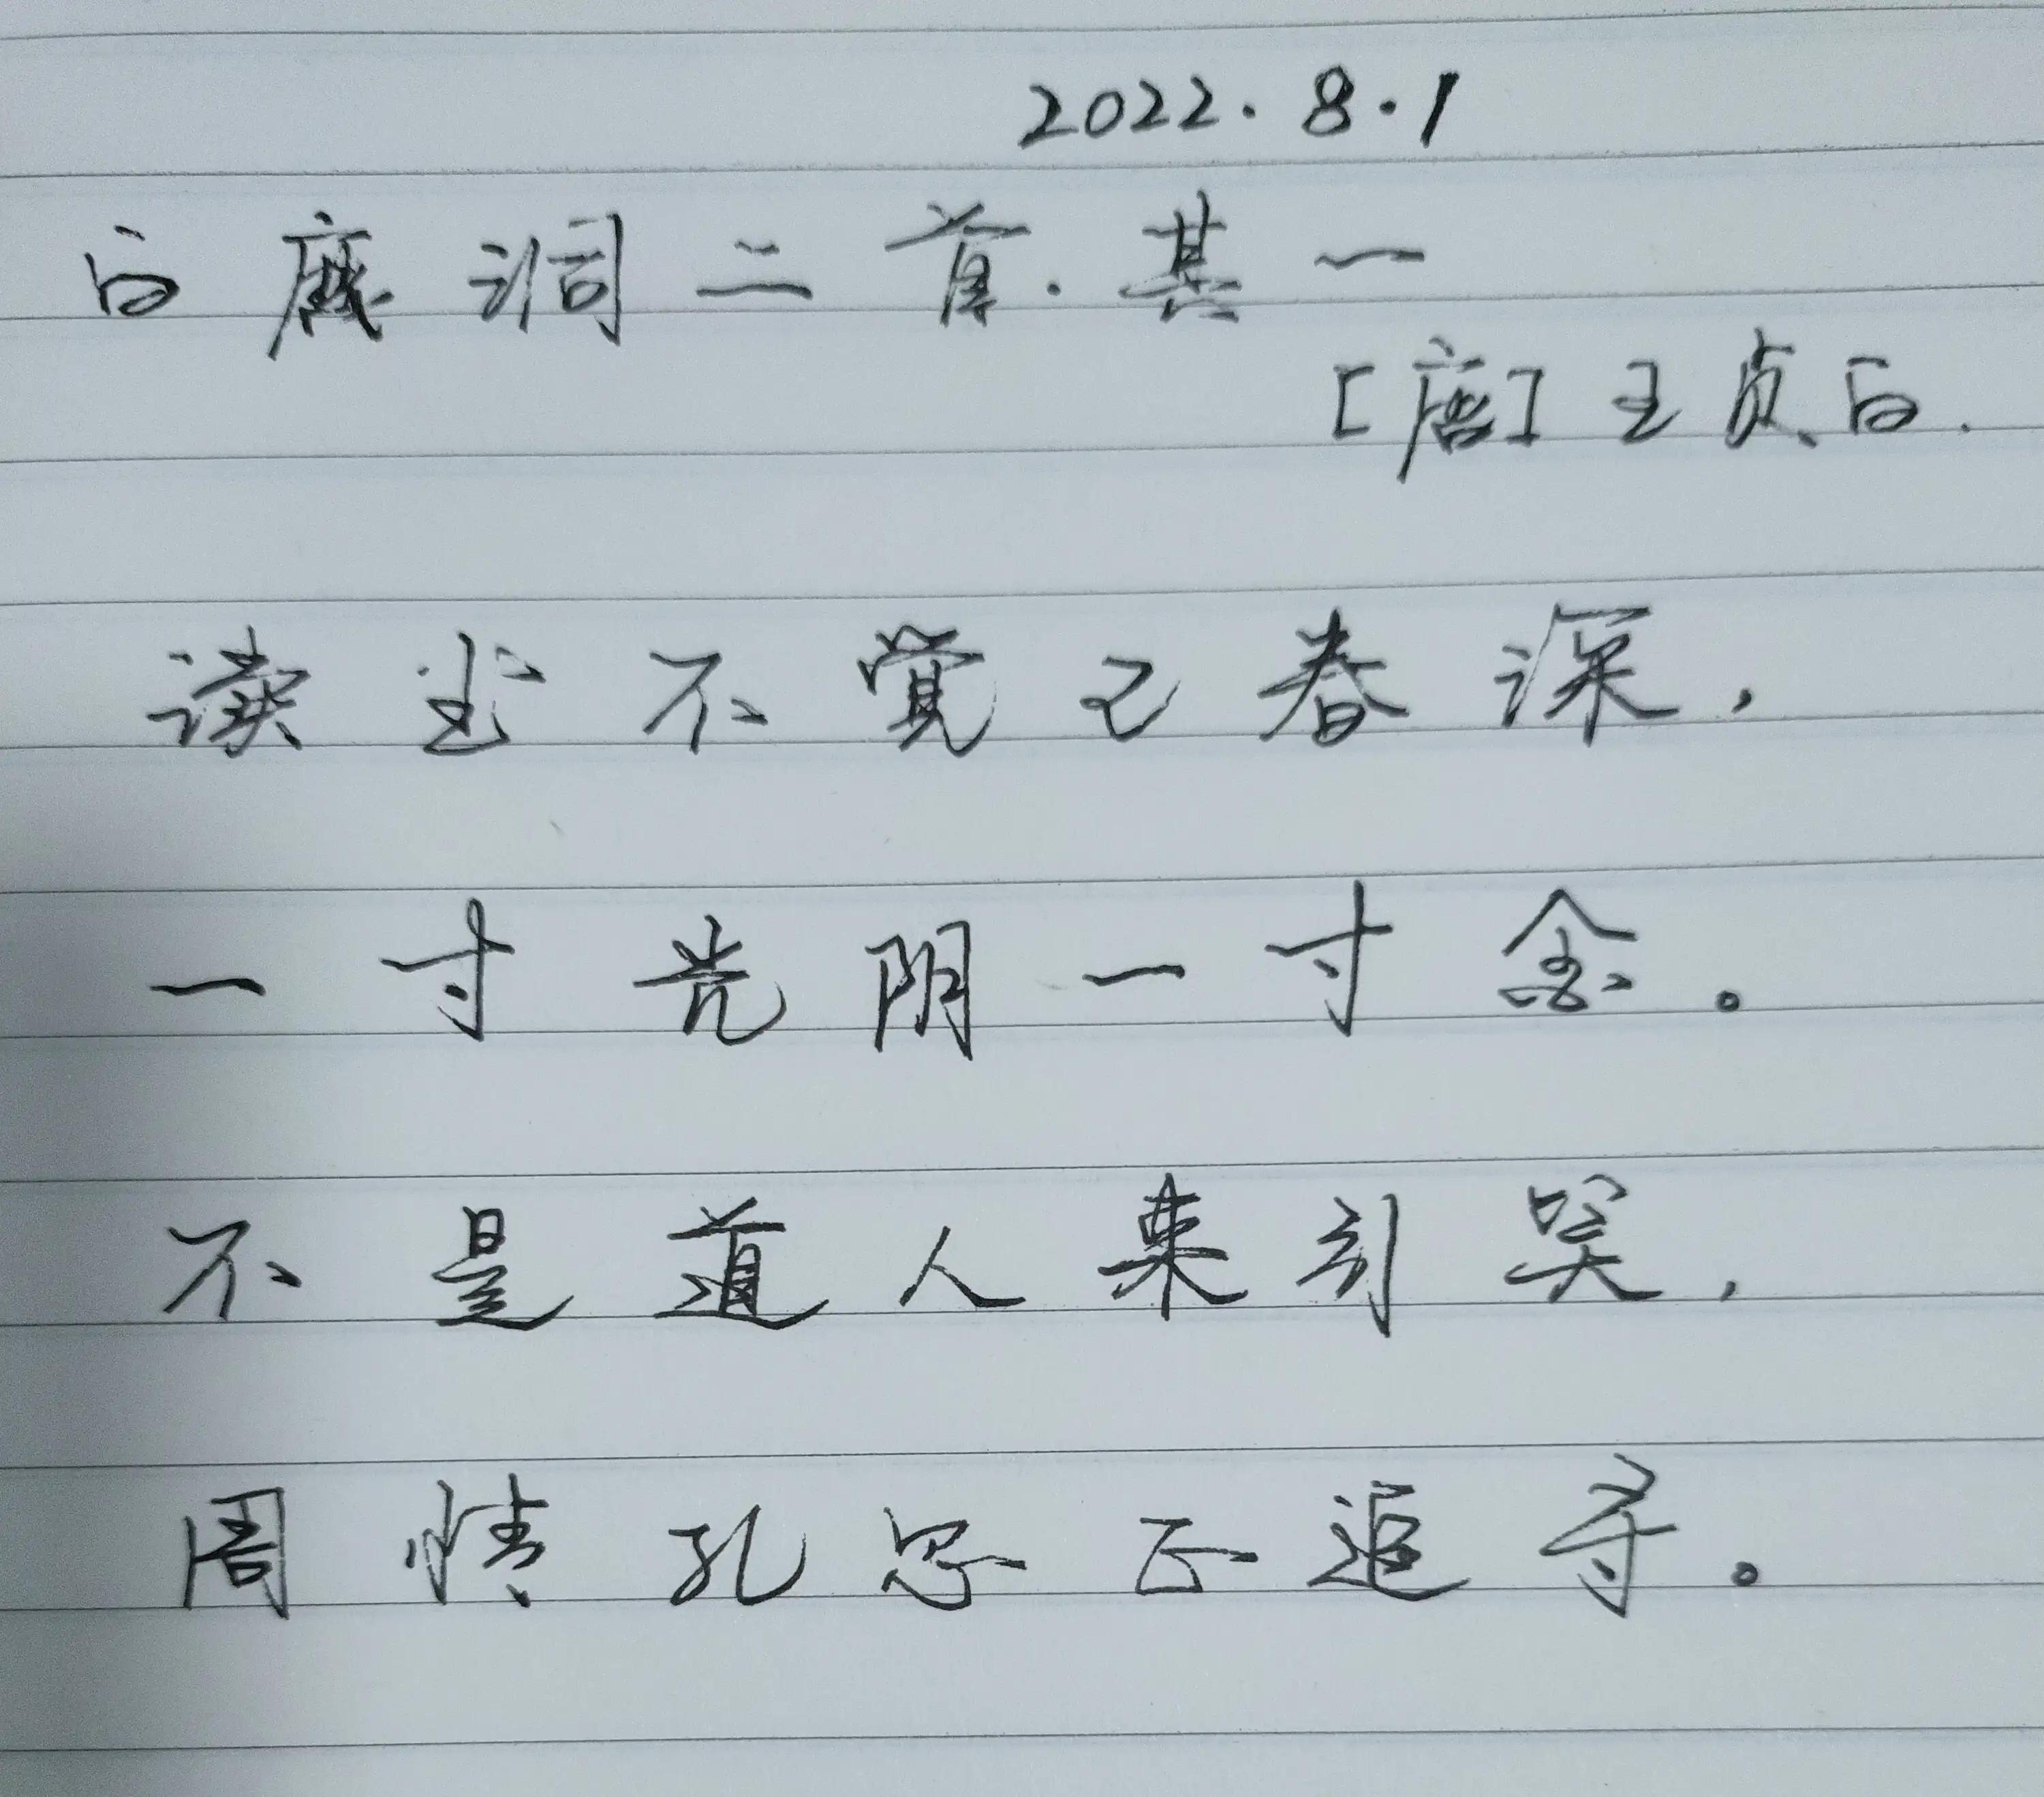 2022.8.1
白鹿洞二首·其一
[唐]王贞白.
读书不觉已春深，
一寸光阴一寸金。
不是道人来引笑，
周情孔思正追寻。